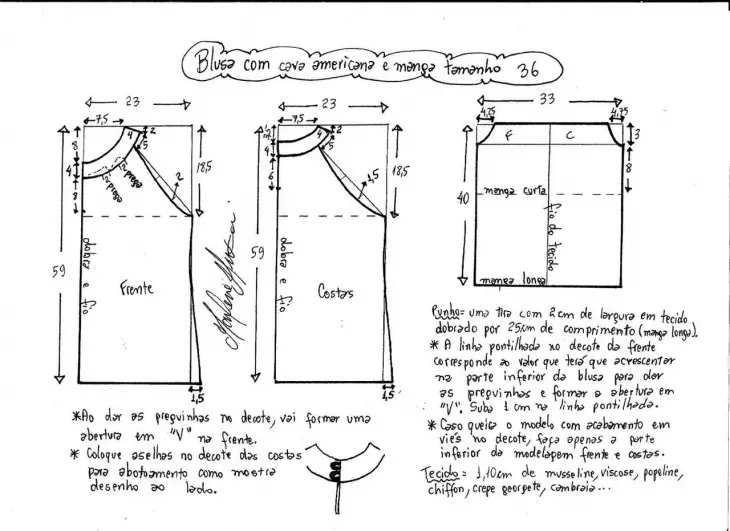 Blusa com cava americana e manga tamanho 36
23
7,5
4
2
5
8
4
8
18,5
2
1ª prega
2ª prega
59
dobra e fio
Frente
1,5
23
7,5
4
2
5
4
6
18,5
1,5
59
dobra e fio
Costas
1,5
33
4,75
4,75
F
C
3
8
40
manga curta
fio do tecido
manga longa
Punho= uma tira com 2cm de largura em tecido
dobrado por 25cm de comprimento (manga longa).
* A linha pontilhada no decote da frente
corresponde ao valor que terá que acrescentar
na parte inferior da blusa para dar
as preguinhas e formar a abertura em
"V". Suba 1 cm na linha pontilhada.
* Caso queira o modelo com acabamento em
viés no decote, faça apenas a parte
inferior da modelagem frente e costas.
Tecido = 1,10cm de musseline, viscose, popeline,
chiffon, crepe georgete, cambraia...
*Ao dar as preguinhas no decote, vai formar uma
abertura em "V" na frente.
* Coloque aselhas no decote das costas
para abotoamento como mostra
desenho ao lado.